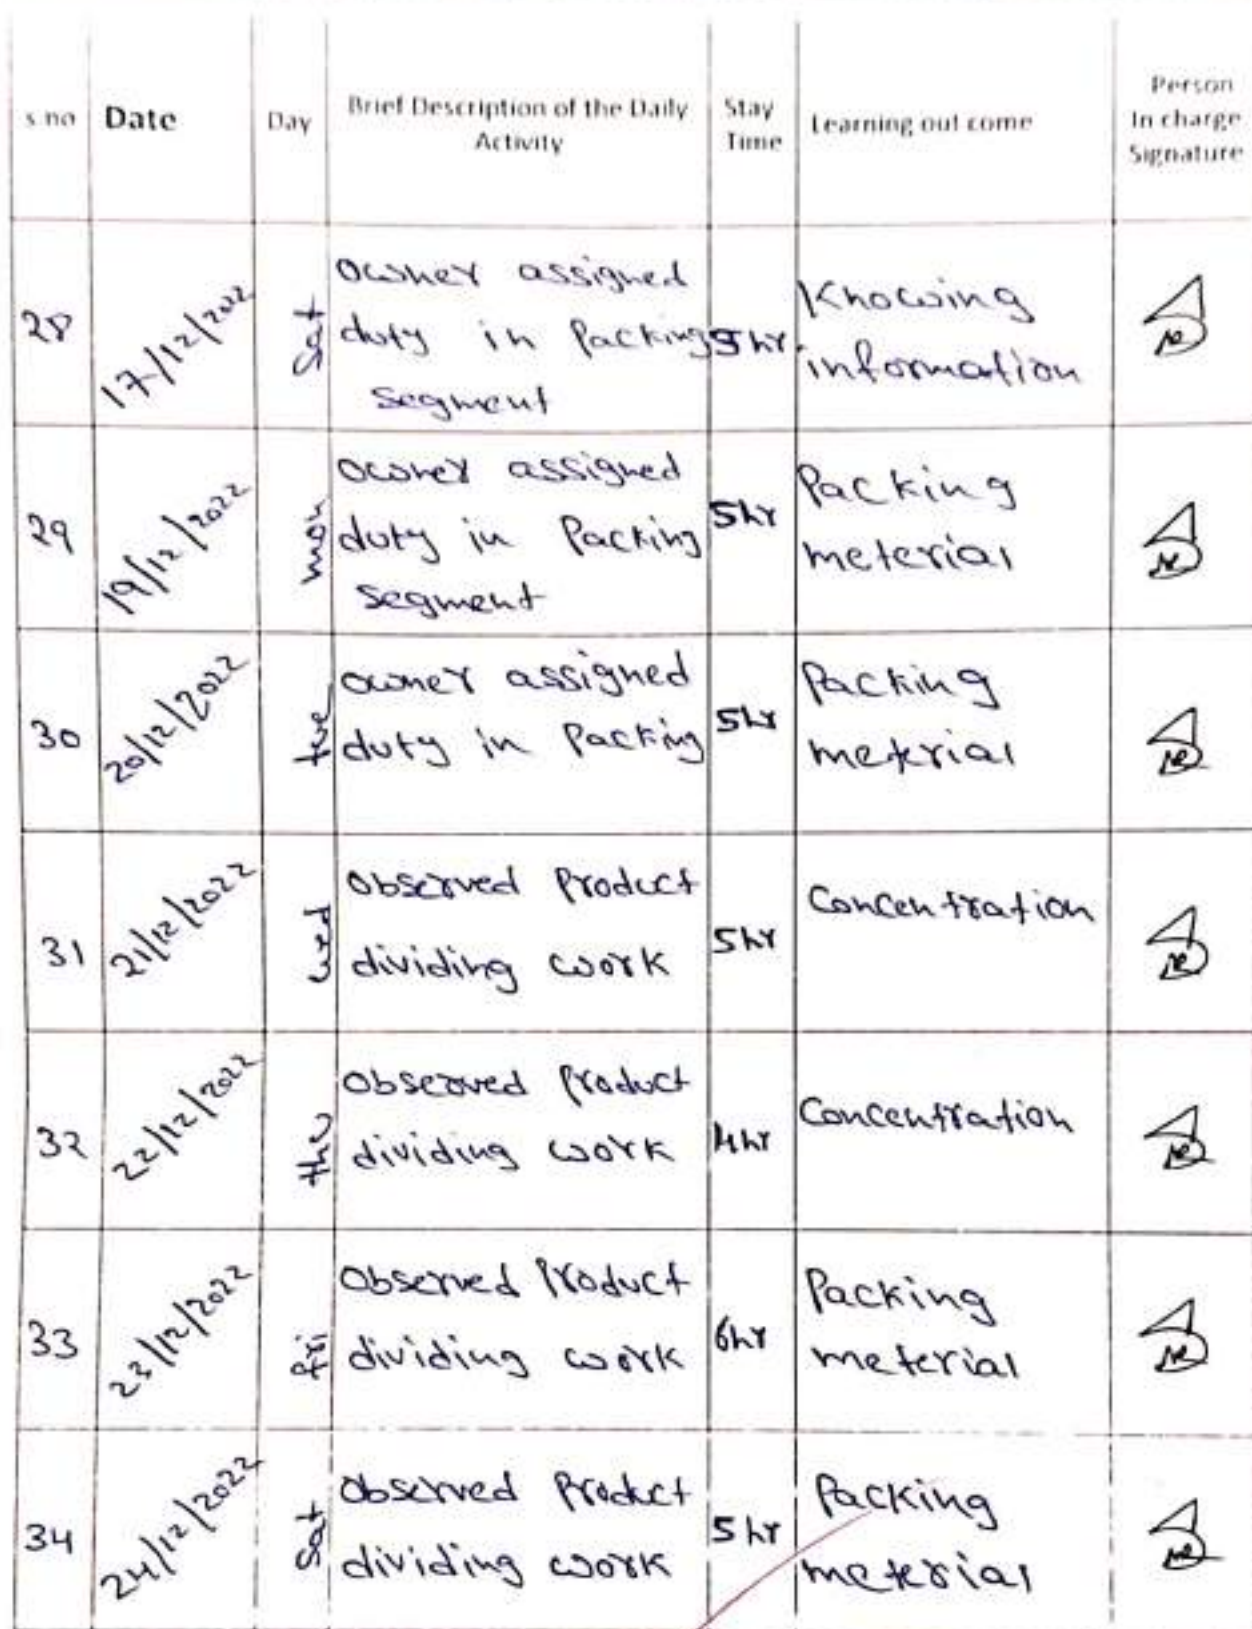 s no Date Day Brief Description of the Daily Activity Stay Time Learning out come Person In charge Signature
28 17/12/2022 Sat owner assigned duty in Packing segment 5hr. Knowing information
29 19/12/2022 mon owner assigned duty in Packing segment 5hr Packing meterial
30 20/12/2022 tue owner assigned duty in Packing 5hr Packing meterial
31 21/12/2022 wed Observed Product dividing work 5hr Concentration
32 22/12/2022 thu Observed Product dividing work 4hr Concentration
33 23/12/2022 fri Observed Product dividing work 6hr Packing meterial
34 24/12/2022 Sat Observed Product dividing work 5hr Packing meterial